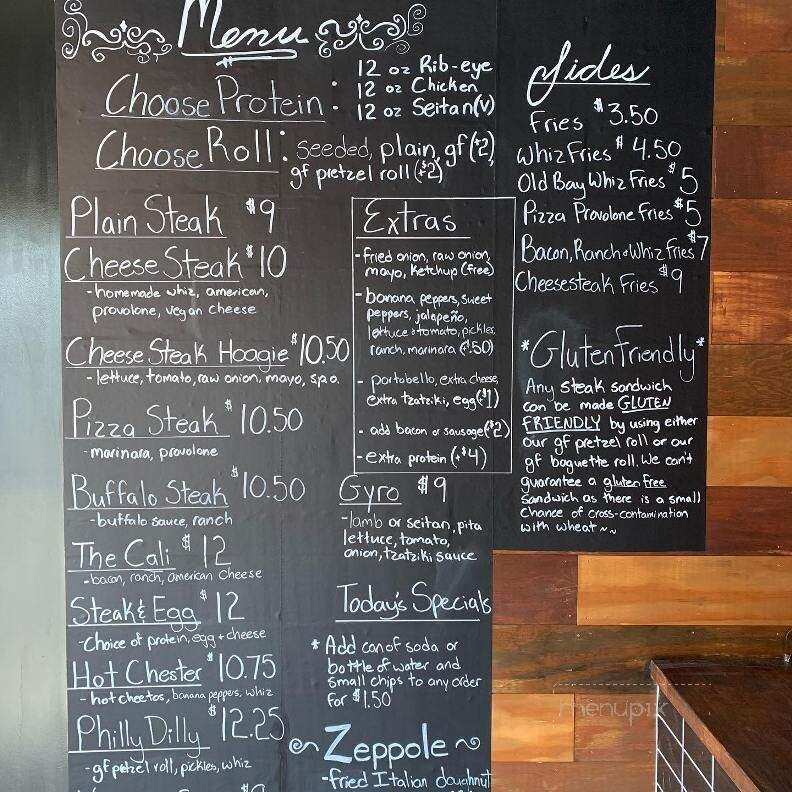 Menu
Choose Protein:
12 oz Rib-eye
12 oz Chicken
12 oz Seitan(v)
Choose Roll: seeded, plain, gf (+$2),
gf pretzel roll (+$2)
Plain Steak $9
Cheese Steak $10
-homemade whiz, american,
provolone, vegan cheese
Cheese Steak Hoagie $10.50
-lettuce, tomato, raw onion, mayo, spo.
Pizza Steak $10.50
-marinara, provolone
Buffalo Steak $10.50
-buffalo sauce, ranch
The Cali $12
-bacon, ranch, american cheese
Steak & Egg $12
-Choice of protein, egg + cheese
Hot Chester $10.75
-hot cheetos, banana peppers, whiz
Philly Dilly $12.25
-gf pretzel roll, pickles, whiz
Extras
-fried onion, raw onion,
mayo, ketchup (free)
-banana peppers, sweet
peppers, jalapeño,
lettuce & tomato, pickles,
ranch, marinara (+$.50)
- portobello, extra cheese,
extra tzatziki, egg (+$1)
- add bacon or sausage (+$2)
-extra protein (+$4)
Gyro $9
-lamb or seitan, pita
lettuce, tomato,
onion, tzatziki sauce
Today's Specials
* Add can of soda or
bottle of water and
small chips to any order
for $1.50
Zeppole
-fried Italian doughnut
Sides
Fries $3.50
Whiz Fries $4.50
Old Bay Whiz Fries $5
Pizza Provolone Fries $5
Bacon, Ranch & Whiz Fries $7
Cheesesteak Fries $9
*Gluten Friendly*
Any steak sandwich
can be made GLUTEN
FRIENDLY by using either
our gf pretzel roll or our
gf baguette roll. We can't
guarantee a gluten free
sandwich as there is a small
chance of cross-contamination
with wheat ~~
menupix